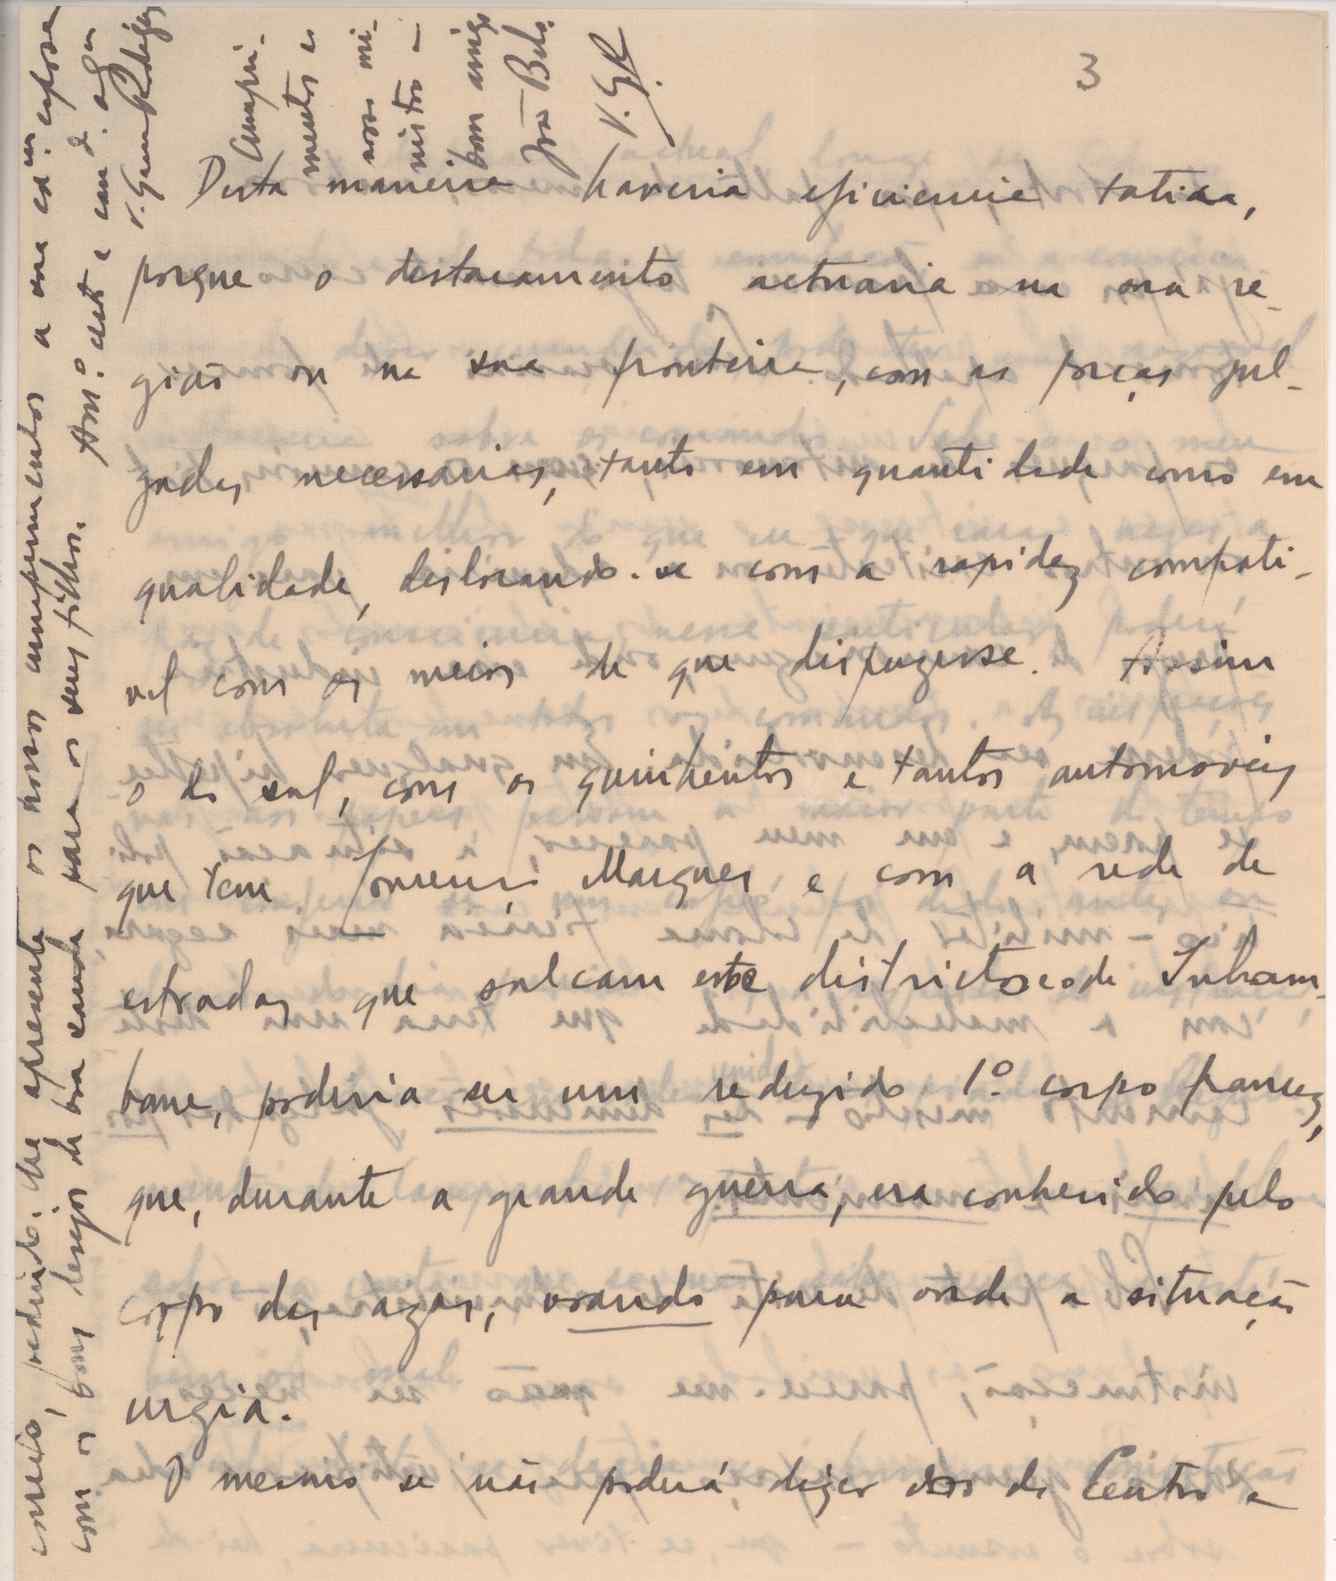 3
Desta maneira haveria eficiencia tatica,
porque o destacamento actuaria na sua re-
gião ou na sua fronteira, com as forças jul-
gadas necessarias, tanto em quantidade como em
qualidade, deslocando-se com a rapidez compati-
vel com os meios de que dispuzesse. Assim
o do sul, com os quinhentos e tantos automoveis
que tem Lourenço Marques e com a rede de
estradas que sulcam este districto e o de Inham-
bane, poderia ser um reduzido 1º corpo francez,
que, durante a grande guerra, era conhecido pelo
corpo das azas, voando para onde a situação
urgia.
O mesmo se não poderá dizer dos do Centro e
muito, pedindo-lhe apresente os nossos cumprimentos a sua Exmª esposa
com os bons desejos de boa saude para os seus filhos.
Amº certo e cam.da agr.
V. Gama Rodrigues
Cumpri-
mentos ao
nosso mi-
nistro e
bom amigo
João Belo.
V. G. R.